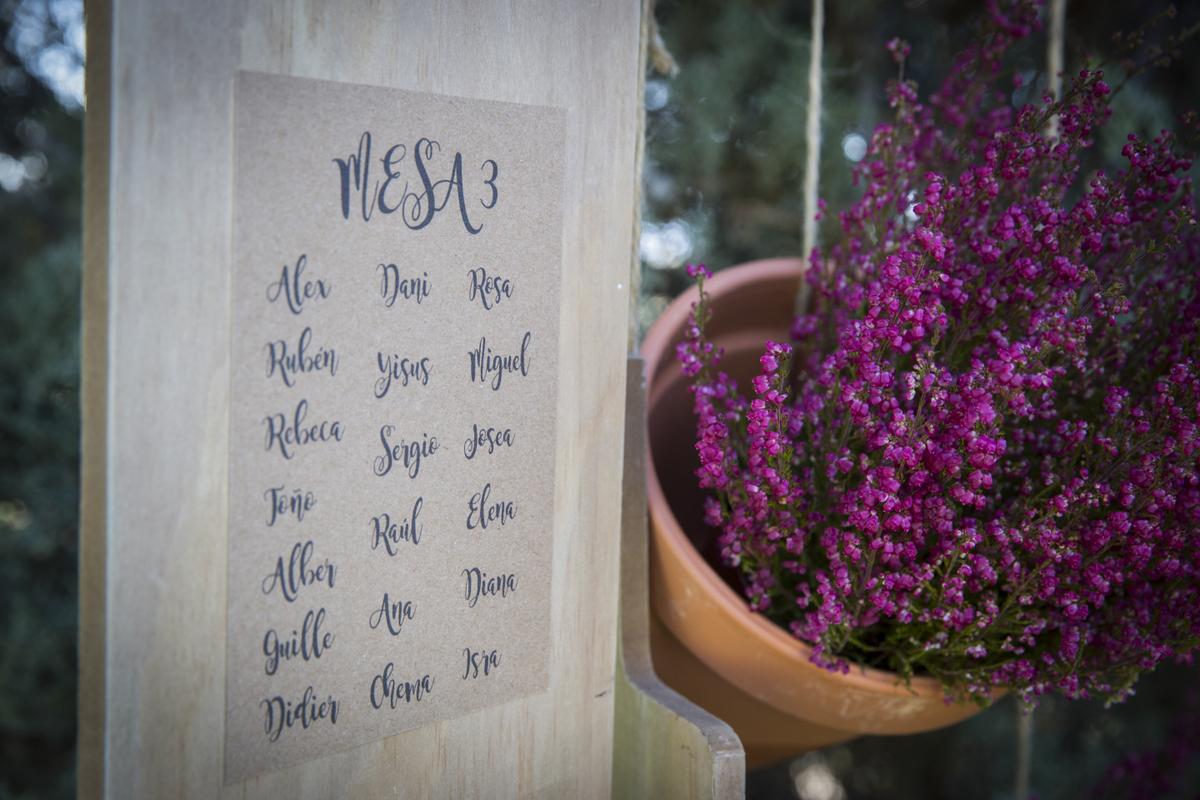 MESA 3
Alex Dani Rosa
Rubén Yisus Miguel
Rebeca Sergio Josea
Toño Raúl Elena
Alber Ana Diana
Guille Chema Isra
Didier